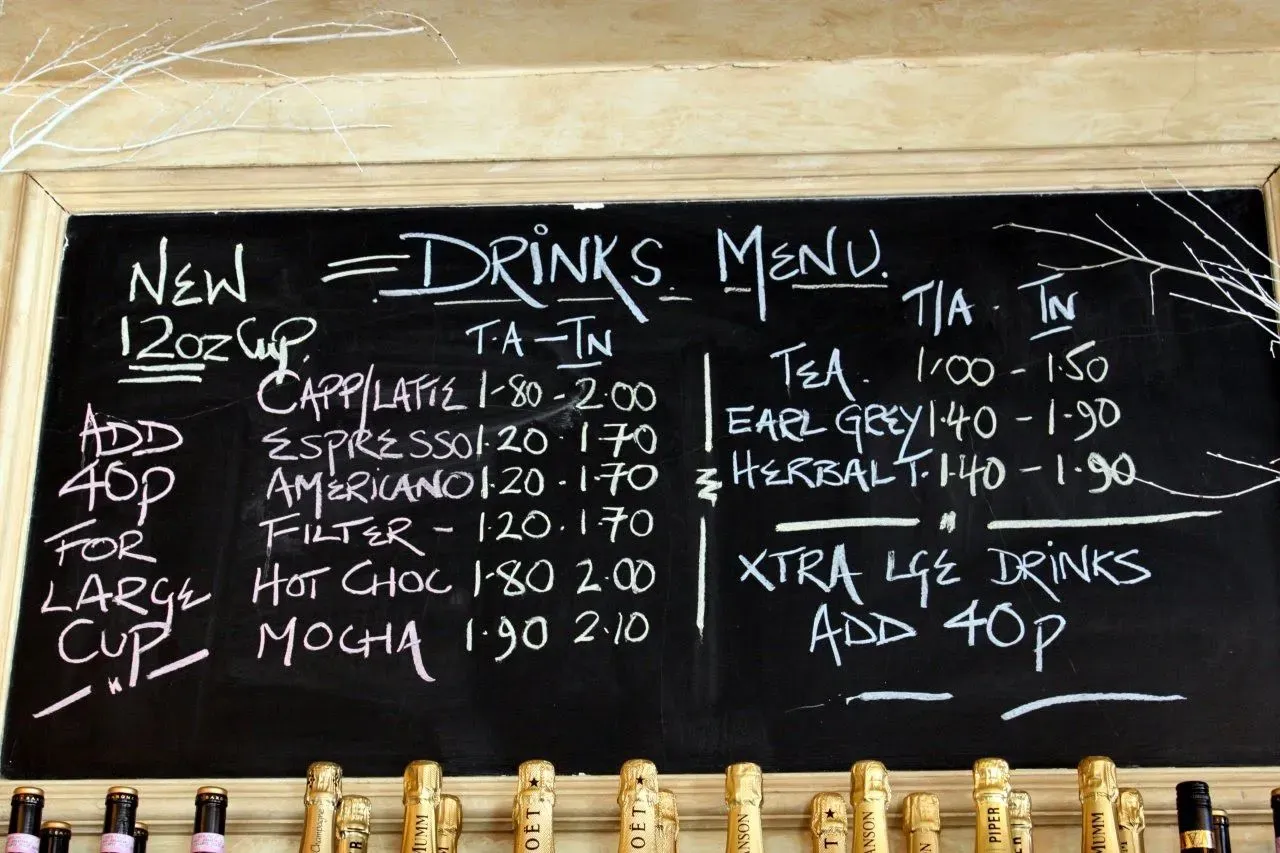 DRINKS MENU.
NEW
12oz CUP.
ADD
40p
FOR
LARGE
CUP
T.A - IN
CAPP/LATTE 1-80 - 2.00
ESPRESSO 1.20 . 1.70
AMERICANO 1.20 - 1.70
FILTER - 1.20 . 1.70
HOT CHOC 1-80 2.00
MOCHA 1.90 2.10
T/A - IN
TEA . 1.00 - 1.50
EARL GREY 1.40 - 1.90
HERBAL T. 1.40 - 1.90
XTRA LGE DRINKS
ADD 40p
Champagne
MUMM
MOËT
MOËT
ANSON
ANSON
PIPER
MUMM